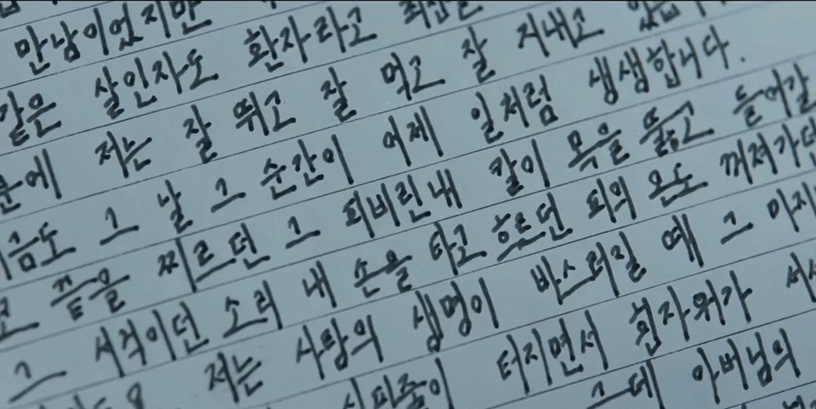 만남이었지만
같은 살인자도 환자라고 최선을
문에 저는 잘 뛰고 잘 먹고 잘 지내고
지금도 그 날 그 순간이 어제 일처럼 생생합니다.
코 끝을 찌르던 그 피비린내 칼이 목을 뚫고 들어갈
그 서걱이던 소리 내 손을 타고 흐르던 피의 온도 꺼져가던
저는 사람의 생명이 바스러질 때 그 마지
터지면서 흰자위가
그데 아버님의